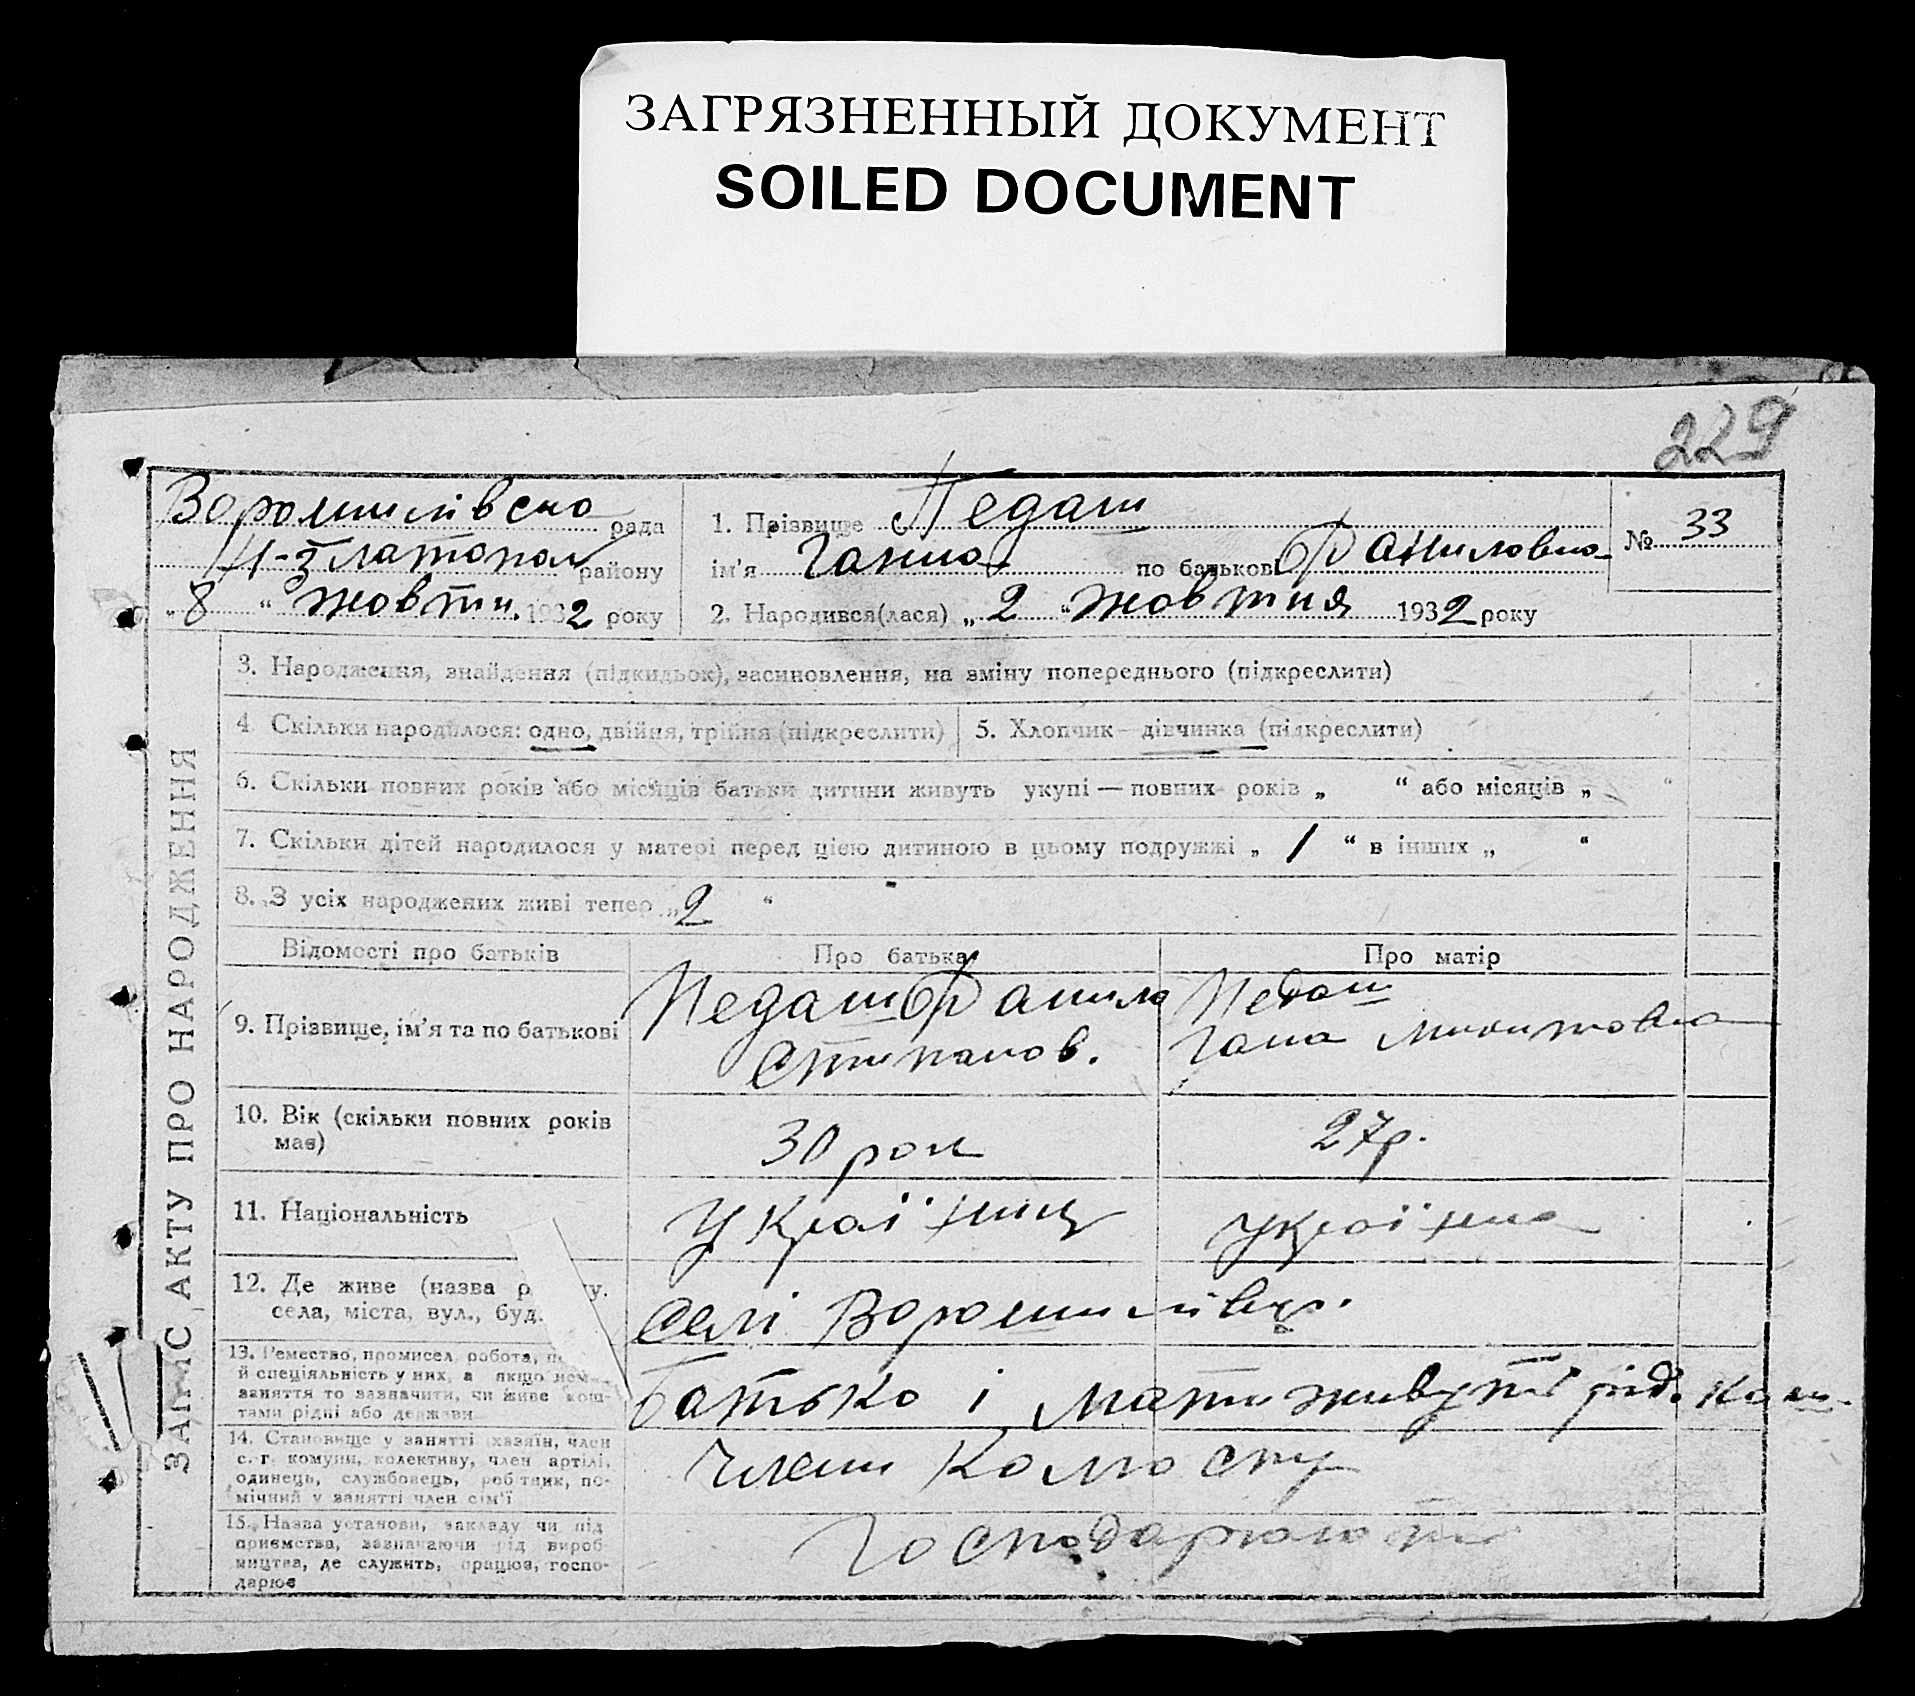 ЗАГРЯЗНЕННЫЙ ДОКУМЕНТ
SOILED DOCUMENT
229
ЗАПИС АКТУ ПРО НАРОДЖЕННЯ
Ворошилівська рада
Н-Златопол району
„ 8 “ жовтн. 1932 року
1. Прізвище Педаш
ім'я Ганна по батькові Даниловна
№ 33
2. Народився(лася) „ 2 “ жовтня 1932 року
3. Народження, знайдення (підкидьок), засиновлення, на зміну попереднього (підкреслити)
4. Скільки народилося: одно, двійня, трійня (підкреслити)
5. Хлопчик — дівчинка (підкреслити)
6. Скільки повних років або місяців батьки дитини живуть укупі — повних років „ “ або місяців „ “
7. Скільки дітей народилося у матері перед цією дитиною в цьому подружжі „ 1 “ в інших „ “
8. З усіх народжених живі тепер „ 2 “
Відомості про батьків Про батька Про матір
9. Прізвище, ім'я та по батькові
Педаш Данило
Стипанов.
Педаш
Гана Микитовна
10. Вік (скільки повних років
має)
30 рок
27р.
11. Національність
Україниц
Україна
12. Де живе (назва
села, міста, вул., буд.
Селі Ворошилівці.
13. Ремество, промисел, робота,
й спеціяльність у них, а якщо
заняття то зазначити, чи живе кош-
тами рідні або держави
Батько і мати живуть рід. кош.
14. Становище у занятті (хазяїн, член
с.-г. комуни, колективу, член артілі,
одинець, службовець, робітник, по-
мічний у занятті член сім'ї
Члени Колгоспу
15. Назва установи, закладу чи під
приємства, зазначаючи рід вироб
ництва, де служить, працює, госпо-
дарює
Господарюють